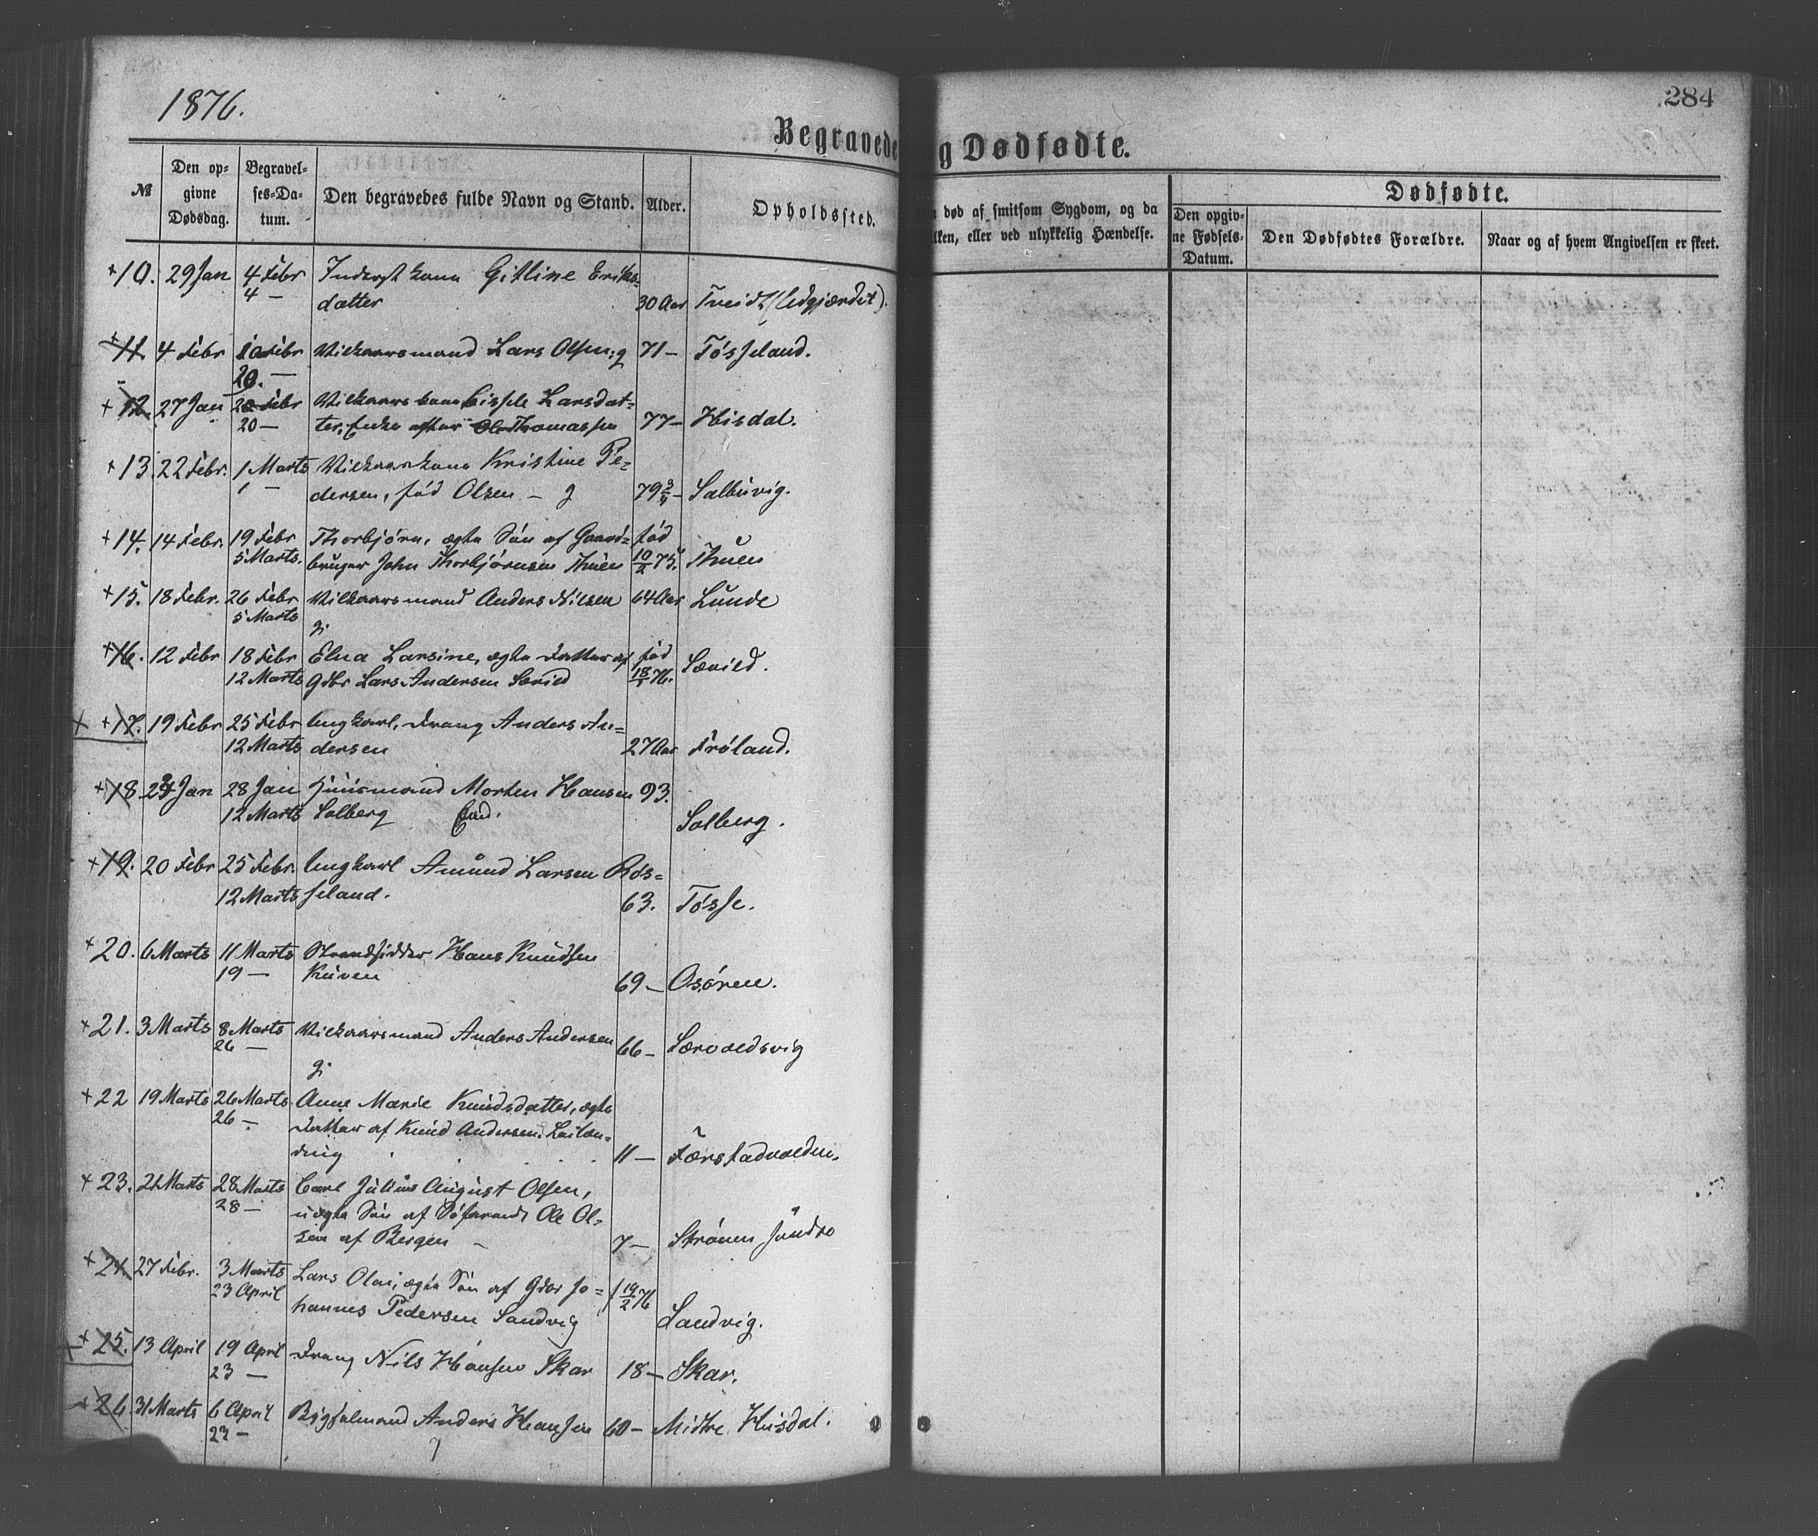 1876.
284
Begravede
g Dødfødte.
№
Den op-
givne
Dødsdag.
Begravel-
ses-Da-
tum.
Den begravedes fulde Navn og Stand.
Alder.
Opholdssted.
død af smitsom Sygdom, og da
lken, eller ved ulykkelig Hændelse.
Dødfødte.
Den opgiv-
ne Fødsels-
Datum.
Den Dødfødtes Forældre.
Naar og af hvem Angivelsen er skeet.
+10. 29 Jan 4 Febr Inderstkone Gitline Eriks-
4 — datter 30 Aar Tveidt (Udgjærdet).
+11 4 Febr 10 Febr Vilkaarsmand Lars Olsen g 71 — Tøsseland.
20. —
+12. 27 Jan 20 Febr Vilkaarskone Sissele Larsdat-
20 — ter, Enke efter Ole Thomassen 77 — Hisdal.
+13 22 Febr. 1 Marts Vilkaarskone Kristine Pe-
1 — dersen, fød Olsen — g 79 3/4 — Solbuvig.
+14. 14 Febr. 19 Febr Thorbjørn, ægte Søn af Gaard- fød
5 Marts. bruger John Thorbjørnsen Thuen 10/2 75. Thuen
+15. 18 Febr. 26 Febr Vilkaarsmand Anders Nilsen 64 Aar Lunde
5 Marts g.
+16. 12 Febr 18 Febr Elna Larsine, ægte Datter af fød
12 Marts Gdbr Lars Andersen Søvild 18/1 76. Søvild.
+ +17. 19 Febr 25 Febr Ungkarl, Dreng Anders An-
12 Marts dersen 27 Aar Frøland.
+18 23 Jan 28 Jan Huusmand Morten Hansen 93.
12 Marts Solberg Enk. Solberg.
+19. 20 Febr 25 Febr. Ungkarl Amund Larsen Røs-
12 Marts seland. 63. Tøsse.
+20. 6 Marts 11 Marts Strandsidder Hans Knudsen
19 — Kuven 69 — Osøren.
+21. 3 Marts 8 Marts Vilkaarsmand Anders Andersen
26 — g. 66 — Særvoldsvig
+22 19 Marts 26 Marts Anne Marie Knudsdatter, ægte
26 — Datter af Knud Andersen
11 —
+23. 21 Marts 28 Marts Carl Julius August Olsen,
28 — uægte Søn af Søfarende Ole Ol-
sen af Bergen — 7 — Strønen Søndre
+24. 27 Febr. 3 Marts Lars Olai, ægte Søn af Gdbr Jo-
23 April hannes Pedersen Sandvig f 19/2 76 Sandvig.
+ 25. 13 April 19 April Dreng Nils Hansen Skar 18 — Skar.
23 —
+26. 31 Marts 6 April Bygselmand Anders Hansen 60 — Midtre Hisdal.
23 — g